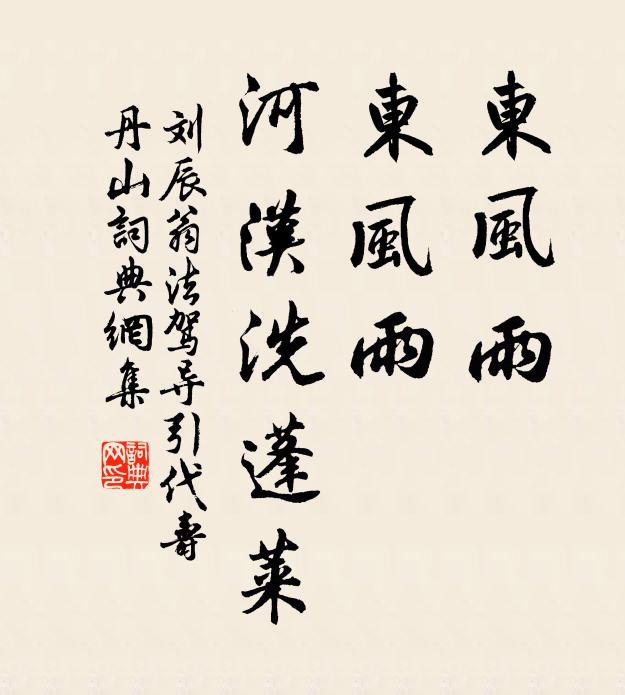 東風雨
東風雨
河漢洗蓬萊
刘辰翁法驾导引代壽
丹山詞典網集
詞典
网印